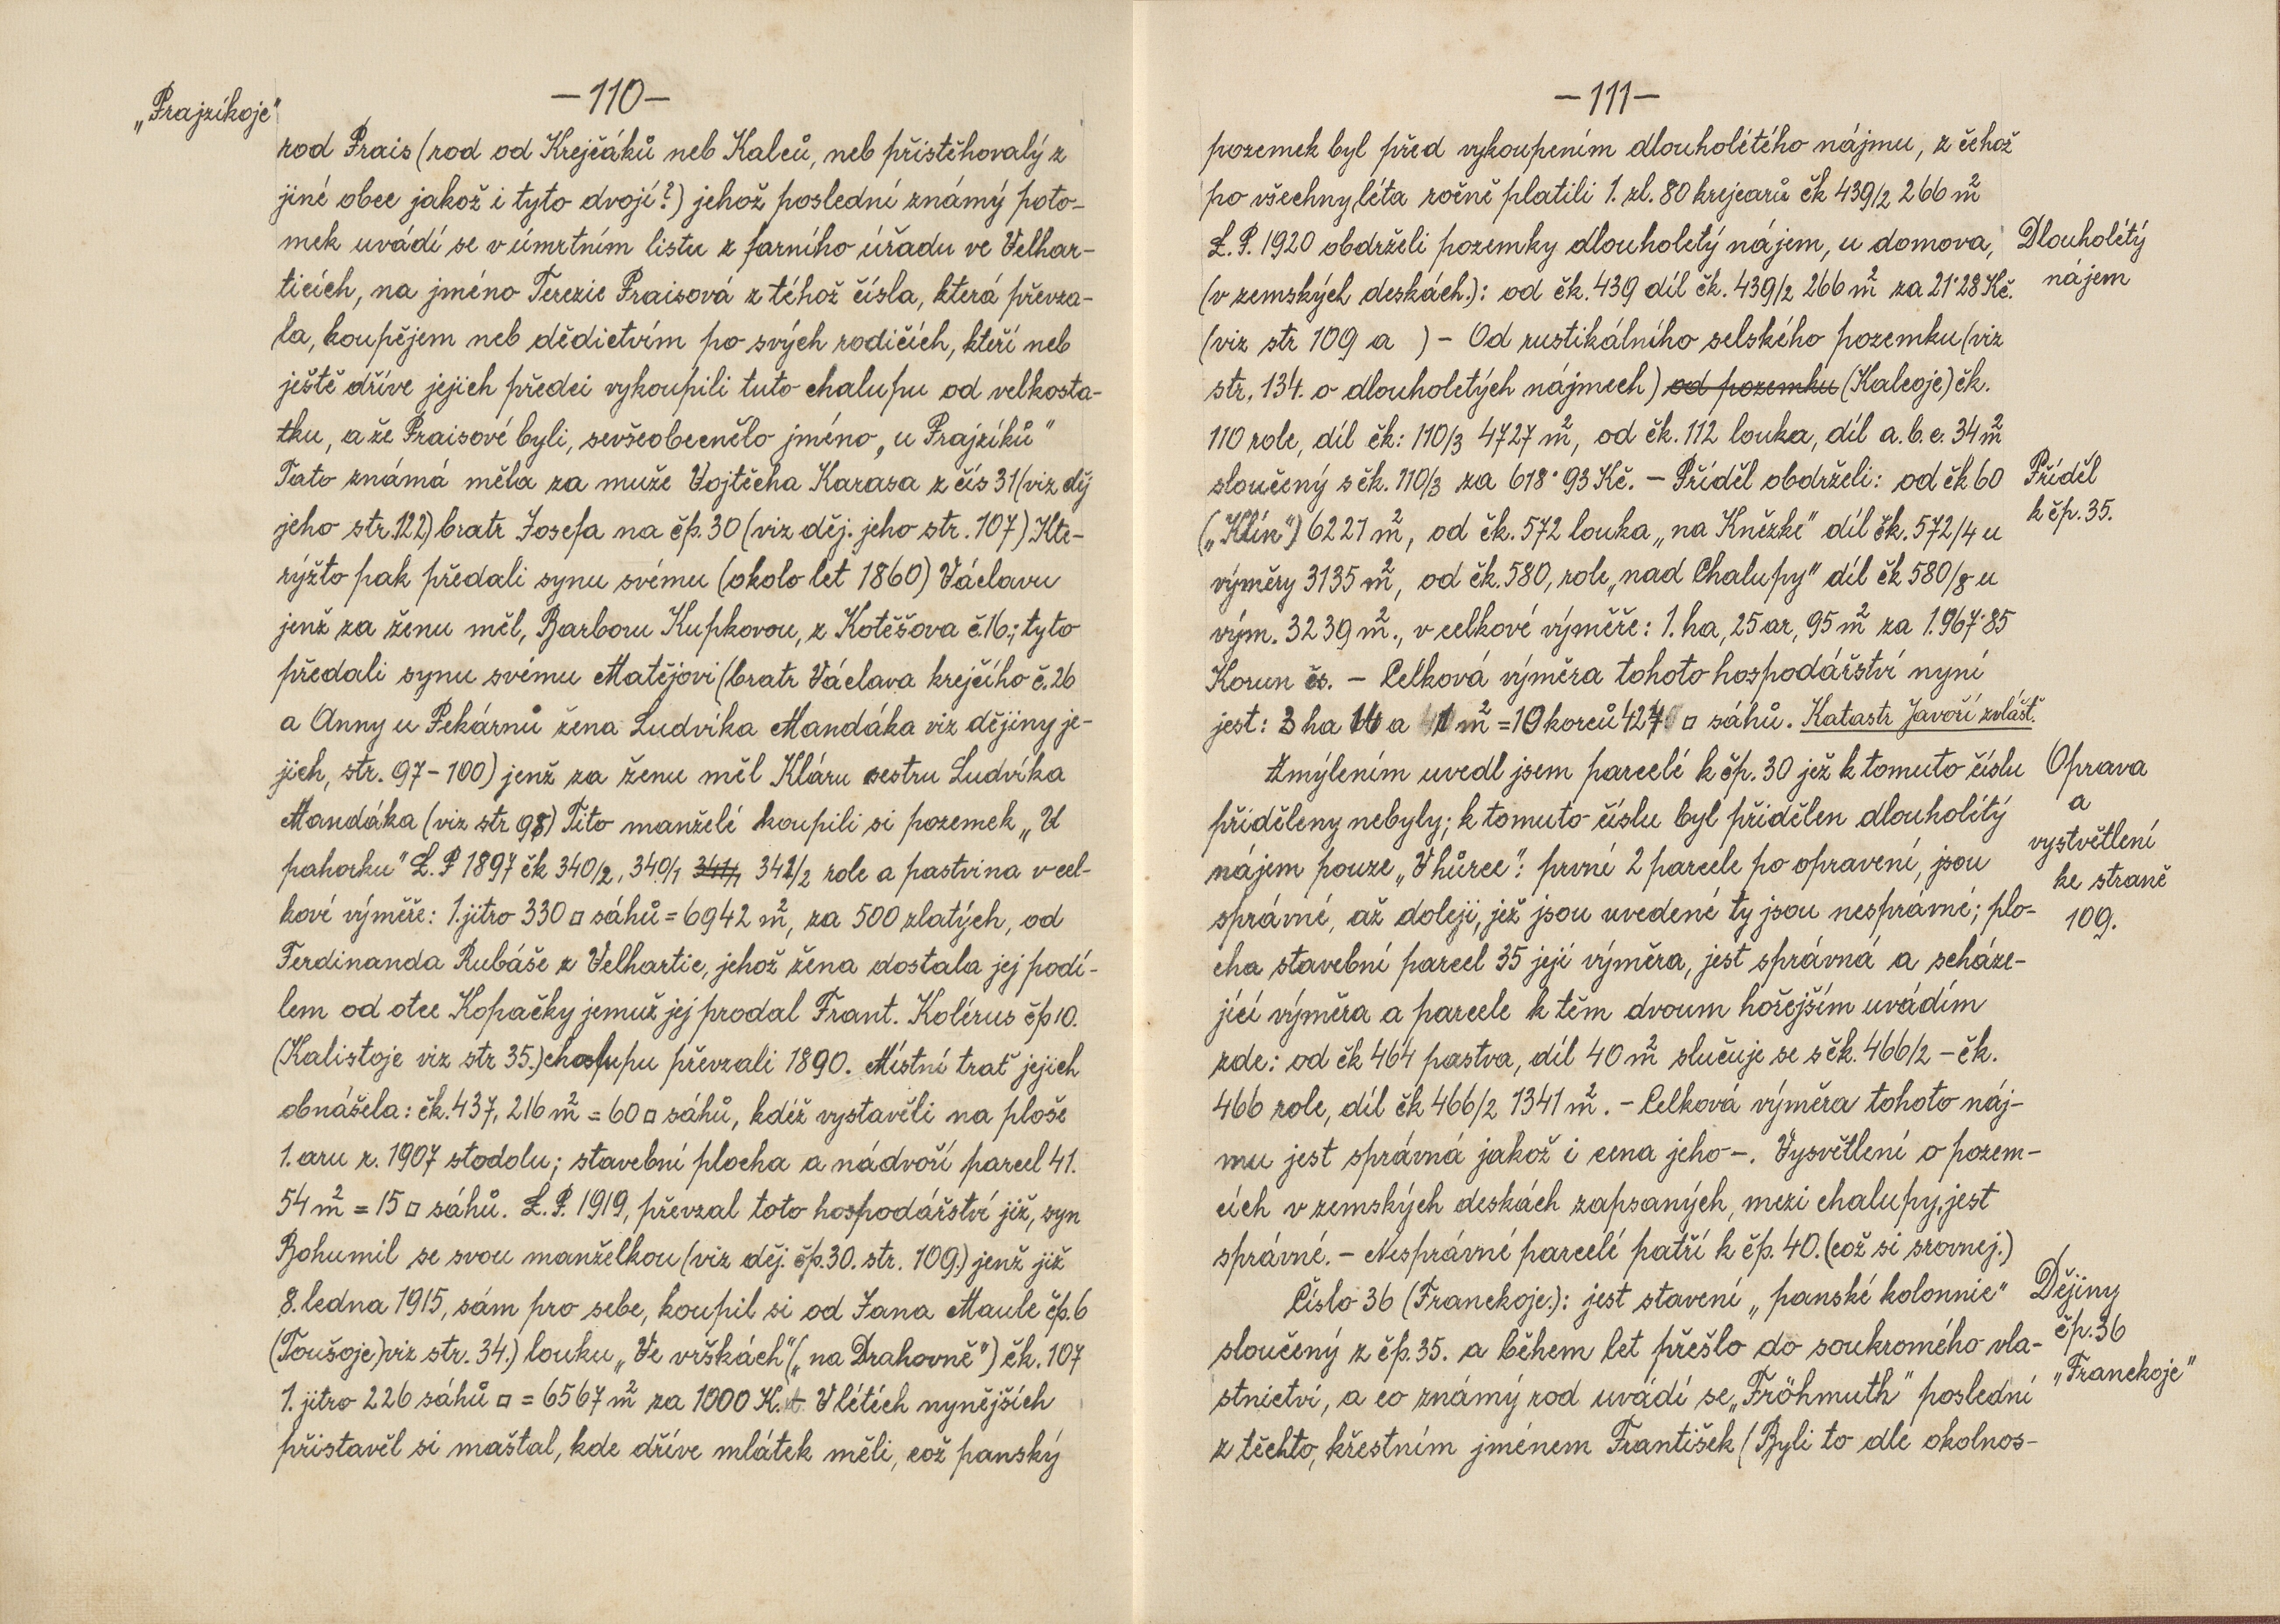 „Prajzíkoje"
—110—
rod Prais (rod od Krejčáků neb Kalců, neb přistěhovalý z
jiné obce jakož i tyto dvojí?) jehož poslední známý poto-
mek uvádí se v úmrtním listu z farního úřadu ve Velhar-
ticích, na jméno Terezie Praisová z téhož čísla, která převza-
la, koupějem neb dědictvím po svých rodičích, kteří neb
ještě dříve jejich předci vykoupili tuto chalupu od velkosta-
tku, a že Praisové byli, sevšeobecnělo jméno „u Prajzíků"
Tato známá měla za muže Vojtěcha Karasa z čís 31 (viz děj
jeho str. 122) bratr Josefa na čp. 30 (viz děj. jeho str. 107) Kte-
rýžto pak předali synu svému (okolo let 1860) Václavu
jenž za ženu měl, Barboru Kupkovou, z Kotěšova č.16.; tyto
předali synu svému Matějovi (bratr Václava krejčího č. 26
a Anny u Pekárnů žena Ludvíka Mandáka viz dějiny je-
jich, str. 97-100) jenž za ženu měl Kláru sestru Ludvíka
Mandáka (viz str 98) Tito manželé koupili si pozemek „U
pahorku" L. P 1897 čk 340/2, 340/1 341/1 341/2 role a pastvina v cel-
kové výměře: 1. jitro 330 □ sáhů = 6942 m², za 500 zlatých, od
Ferdinanda Rubáše z Velhartic, jehož žena dostala jej podí-
lem od otce Kopačky jemuž jej prodal Frant. Kolérus čp 10.
(Kalistoje viz str 35.) chalupu převzali 1890. Místní trať jejich
obnášela: čk. 437, 216 m² = 60 □ sáhů, kdéž vystavěli na ploše
1. aru r. 1907 stodolu; stavební plocha a nádvoří parcel 41.
54 m² = 15 □ sáhů. L. P. 1919, převzal toto hospodářství již, syn
Bohumil se svou manželkou (viz děj. čp. 30. str. 109.) jenž již
8. ledna 1915, sám pro sebe, koupil si od Jana Maule čp. 6
(Toušoje) viz str. 34.) louku „Ve vrškách" („na Drahovně") čk. 107
1. jitro 226 sáhů □ = 6567 m² za 1000 K. V létéch nynějších
přistavěl si maštal, kde dříve mlátek měli, což panský
—111—
pozemek byl před vykoupením dlouholétého nájmu, z čehož
po všechny léta ročně platili 1. zl. 80 krejcarů čk 439/2 266 m²
L. P. 1920 obdrželi pozemky dlouholetý nájem, u domova,
(v zemských deskách.): od čk. 439 díl čk. 439/2 266 m² za 21·28 Kč.
(viz str 109 a ) – Od rustikálního selského pozemku (viz
str. 134. o dlouholetých nájmech) od pozemku (Kalcoje) čk.
110 role, díl čk: 110/3 4727 m², od čk. 112 louka, díl a. b. c. 34 m²
sloučený s čk. 110/3 za 618·93 Kč. – Příděl obdrželi: od čk 60
(„Klín") 6221 m², od čk. 572 louka „na Kněžke" díl čk. 572/4 u
výměry 3135 m², od čk. 580, role „nad Chalupy" díl čk 580/8 u
vým. 3239 m²., v celkové výměře: 1. ha, 25 ar, 95 m² za 1.967·85
Korun čs. – Celková výměra tohoto hospodářství nyní
jest: 3 ha a m² = 10 korců □ sáhů. Katastr Javoří zvlášť.
Zmýlením uvedl jsem parcelí k čp. 30 jež k tomuto číslu
přiděleny nebyly; k tomuto číslu byl přidělen dlouholétý
nájem pouze „V hůrce": první 2 parcele po opravení, jsou
správné, až doleji, jež jsou uvedené ty jsou nesprávné; plo-
cha stavební parcel 35 její výměra, jest správná a scháze-
jící výměra a parcele k těm dvoum hořejším uvádím
zde: od čk 464 pastva, díl 40 m² slučuje se s čk. 466/2 – čk.
466 role, díl čk 466/2 1341 m². – Celková výměra tohoto náj-
mu jest správná jakož i cena jeho –. Vysvětlení o pozem-
cích v zemských deskách zapsaných, mezi chalupy, jest
správné. – Nesprávné parcelé patří k čp. 40. (což si srovnej.)
Číslo 36 (Franckoje.): jest stavení „panské kolonnie"
sloučený z čp. 35. a během let přešlo do soukromého vla-
stnictví, a co známý rod uvádí se „Fröhmuth" poslední
z těchto, křestním jménem František (Byli to dle okolnos-
Dlouholétý
nájem
Příděl
k čp. 35.
Oprava
a
vystvětlení
ke straně
109.
Dějiny
čp. 36
„Franckoje"